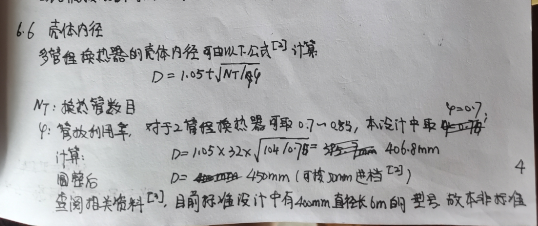 6.6 壳体内径
多管程换热器的壳体内径可由以下公式[2]计算
D=1.05t√NT/φ
NT:换热管数目
φ:管板利用率,对于2管程换热器可取0.7~0.85,本设计中取 φ=0.7,
计算: D=1.05×32×√104/0.7 = 406.8mm
圆整后 D= 450mm (可按50mm进档[2])
4
查阅相关资料[2],目前标准设计中有400mm直径长6m的型号,故本非标准